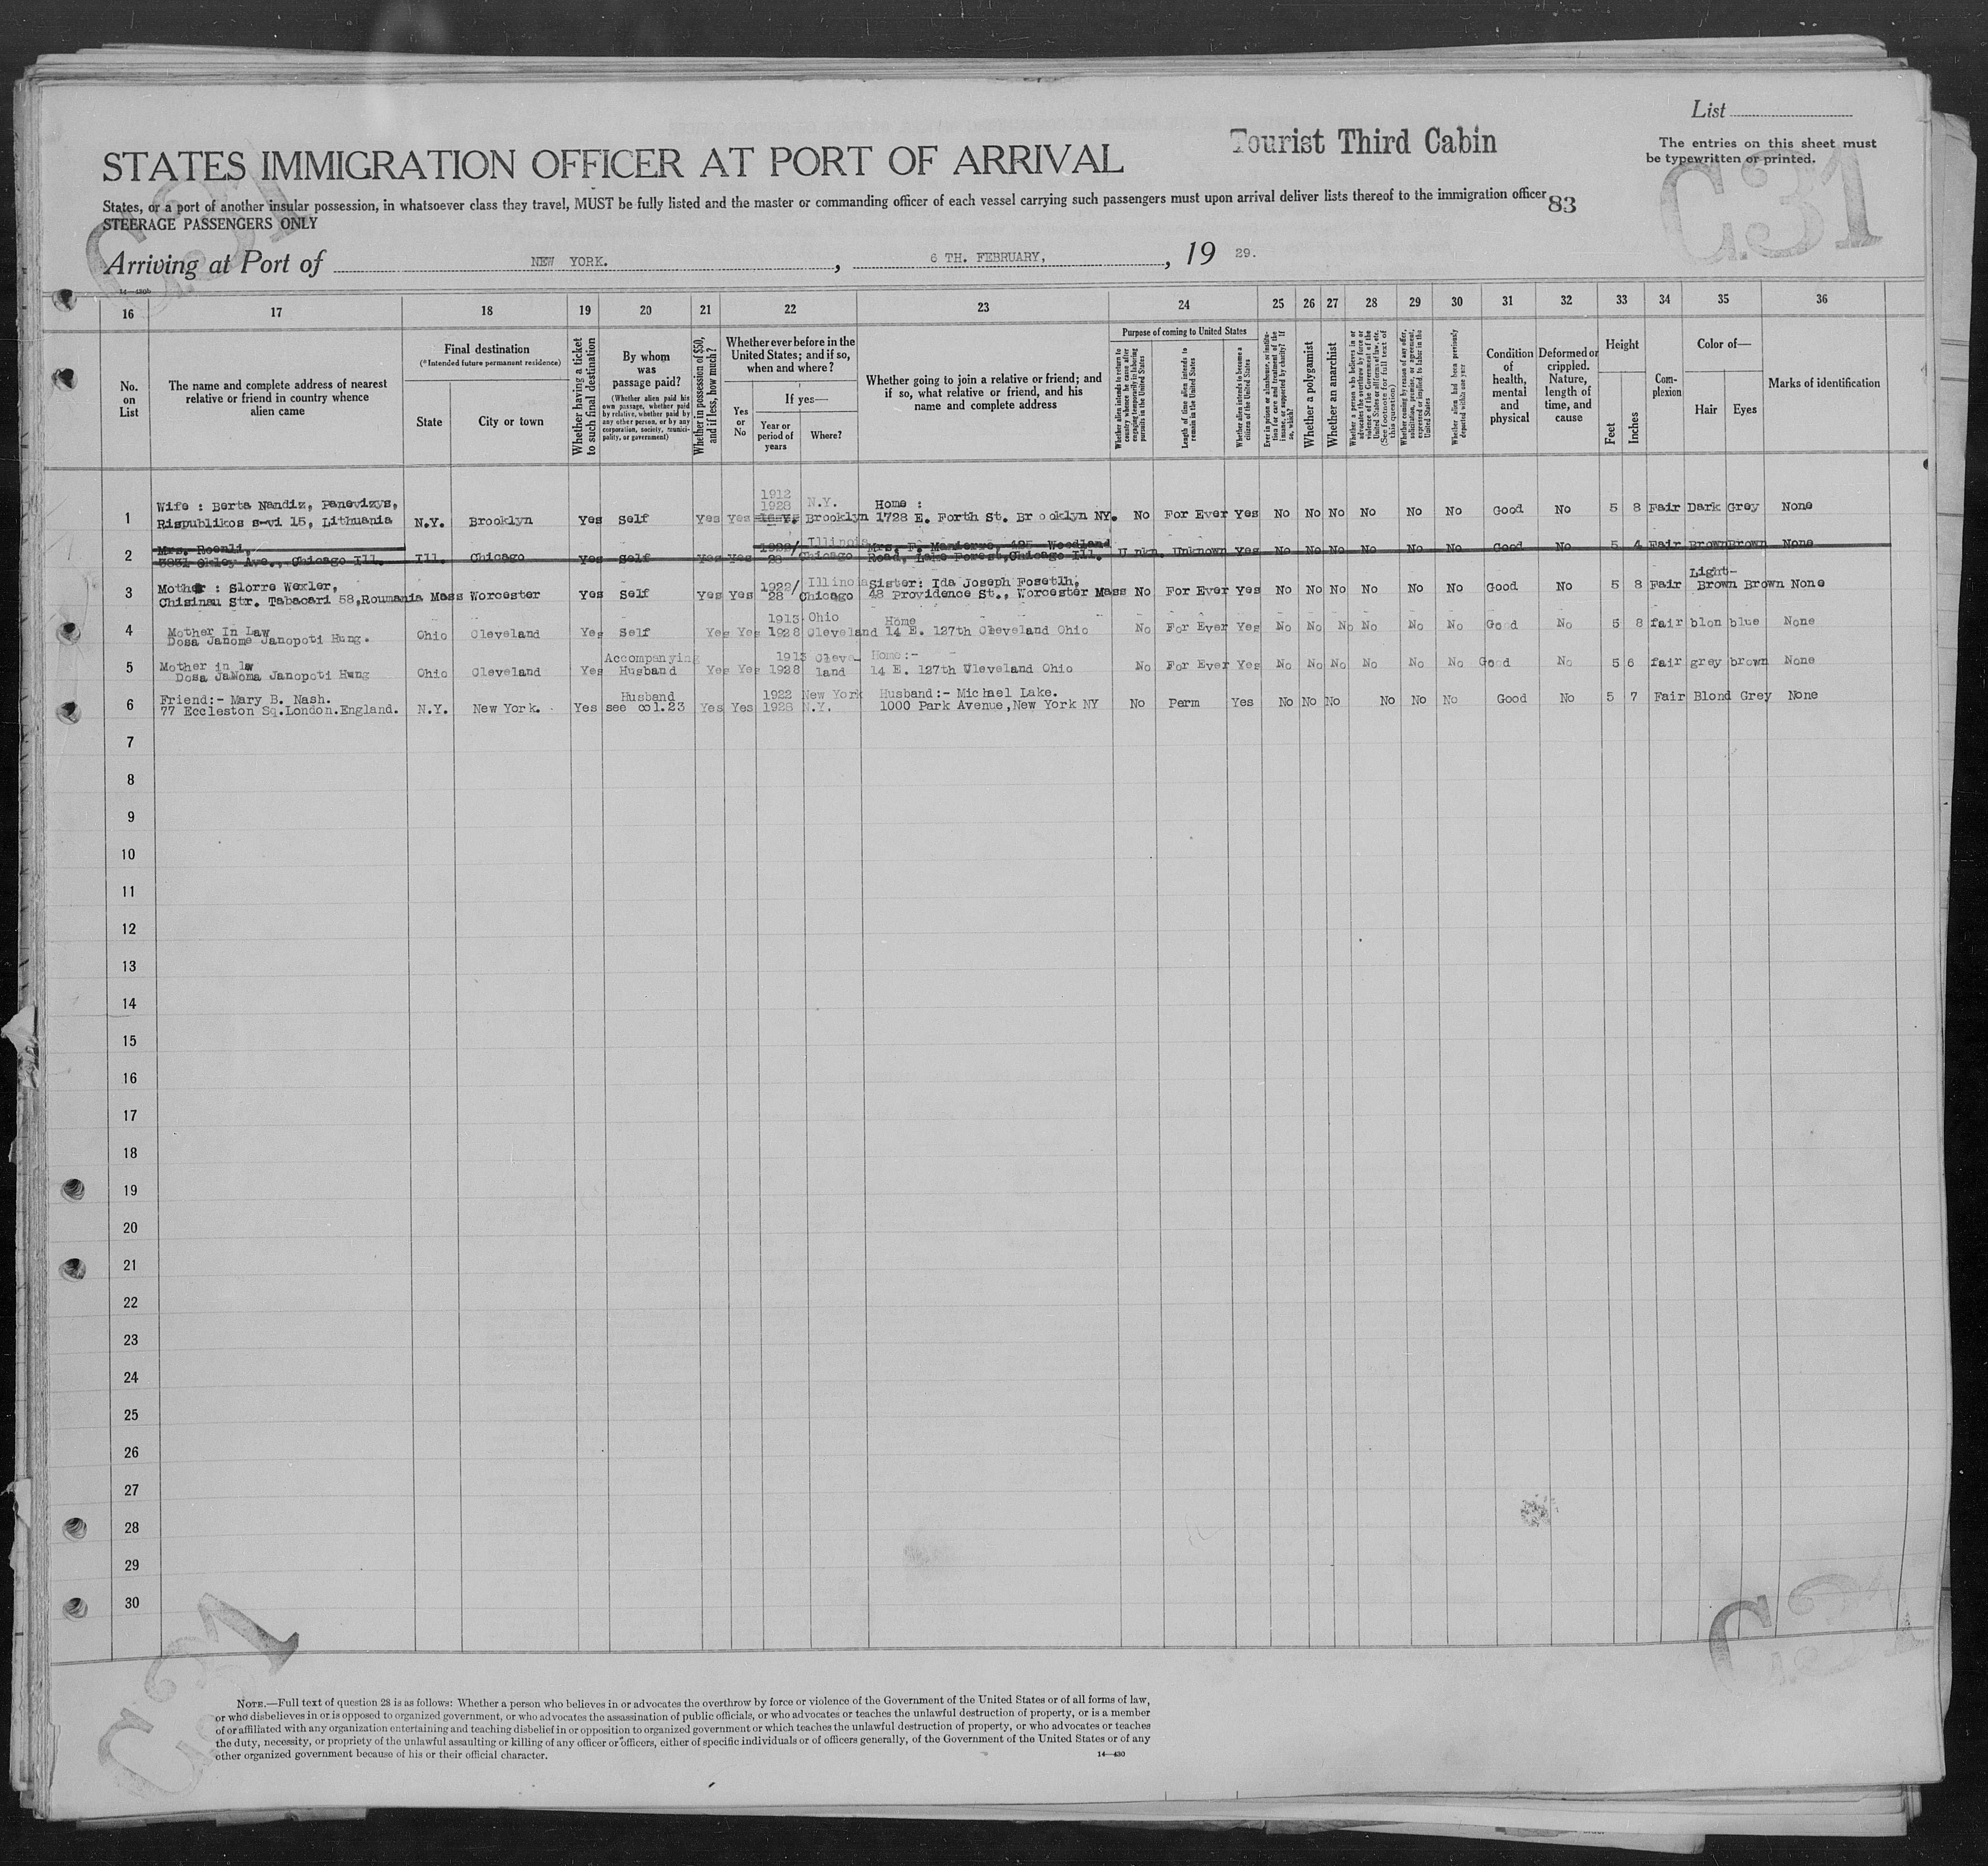 List
Tourist Third Cabin
The entries on this sheet must
be typewritten or printed.
C31
C31
STATES IMMIGRATION OFFICER AT PORT OF ARRIVAL
States, or a port of another insular possession, in whatsoever class they travel, MUST be fully listed and the master or commanding officer of each vessel carrying such passengers must upon arrival deliver lists thereof to the immigration officer
83
STEERAGE PASSENGERS ONLY
Arriving at Port of NEW YORK. , 6 TH. FEBRUARY, , 19 29.
16 17 18 19 20 21 22 23 24 25 26 27 28 29 30 31 32 33 34 35 36
No. on List
The name and complete address of nearest relative or friend in country whence alien came
Final destination
(*Intended future permanent residence)
State
City or town
Whether having a ticket to such final destination
By whom was passage paid?
(Whether alien paid his own passage, whether paid by relative, whether paid by any other person, or by any corporation, society, municipality, or government)
Whether in possession of $50, and if less, how much?
Whether ever before in the United States; and if so, when and where?
Yes or No
If yes—
Year or period of years
Where?
Whether going to join a relative or friend; and if so, what relative or friend, and his name and complete address
Purpose of coming to United States
Whether alien intends to return to country whence he came after engaging temporarily in laboring pursuits in the United States
Length of time alien intends to remain in the United States
Whether alien intends to become a citizen of the United States
Ever in prison or almshouse, or institution for care and treatment of the insane, or supported by charity? If so, which?
Whether a polygamist
Whether an anarchist
Whether a person who believes in or advocates the overthrow by force or violence of the Government of the United States or all forms of law, etc. (See footnote for full text of this question)
Whether coming by reason of any offer, solicitation, promise, or agreement, expressed or implied, to labor in the United States
Whether alien had been previously deported within one year
Condition of health, mental and physical
Deformed or crippled. Nature, length of time, and cause
Height
Feet
Inches
Complexion
Color of—
Hair
Eyes
Marks of identification
1912
1928 N.Y. Home :
Wife : Berta Nandiz, Panevizys,
1 Rispublikos s-vi 15, Lithuania N.Y. Brooklyn Yes Self Yes Yes Brooklyn 1728 E. Forth St. Brooklyn NY. No For Ever Yes No No No No No No Good No 5 8 Fair Dark Grey None
Mrs. Roenli, 1922/ Illinois Mrs. F. Manierre, 495 Woodland
2 Ave., Chicago Ill. Ill. Chicago Yes Self Yes Yes 28 Chicago Road, Lake Forest, Chicago Ill. Unkn. Unknown Yes No No No No No No Good No 5 4 Fair Brown Brown None
Mother : Slorre Wexler, 1922/ Illinois Sister: Ida Joseph Fosetlh, Light-
3 Chisinau Str. Tabacari 58, Roumania Mass Worcester Yes Self Yes Yes 28 Chicago 48 Providence St., Worcester Mass No For Ever Yes No No No No No No Good No 5 8 Fair Brown Brown None
Mother In Law 1913 Ohio Home
4 Dosa Janome Janopoti Hung. Ohio Cleveland Yes Self Yes Yes 1928 Cleveland 14 E. 127th Cleveland Ohio No For Ever Yes No No No No No No Good No 5 8 fair blon blue None
Mother in law Accompanying 1913 Cleve- Home:-
5 Dosa JaNoma Janopoti Hung Ohio Cleveland Yes Husband Yes Yes 1928 land 14 E. 127th Cleveland Ohio No For Ever Yes No No No No No No Good No 5 6 fair grey brown None
Friend:- Mary B. Nash. Husband 1922 New York Husband:- Michael Lake.
6 77 Eccleston Sq.London.England. N.Y. New York. Yes see col.23 Yes Yes 1928 N.Y. 1000 Park Avenue, New York NY No Perm Yes No No No No No No Good No 5 7 Fair Blond Grey None
7
8
9
10
11
12
13
14
15
16
17
18
19
20
21
22
23
24
25
26
27
28
29
30
C31
C31
NOTE.—Full text of question 28 is as follows: Whether a person who believes in or advocates the overthrow by force or violence of the Government of the United States or of all forms of law,
or who disbelieves in or is opposed to organized government, or who advocates the assassination of public officials, or who advocates or teaches the unlawful destruction of property, or is a member
of or affiliated with any organization entertaining and teaching disbelief in or opposition to organized government or which teaches the unlawful destruction of property, or who advocates or teaches
the duty, necessity, or propriety of the unlawful assaulting or killing of any officer or officers, either of specific individuals or of officers generally, of the Government of the United States or of any
other organized government because of his or their official character.
14—430